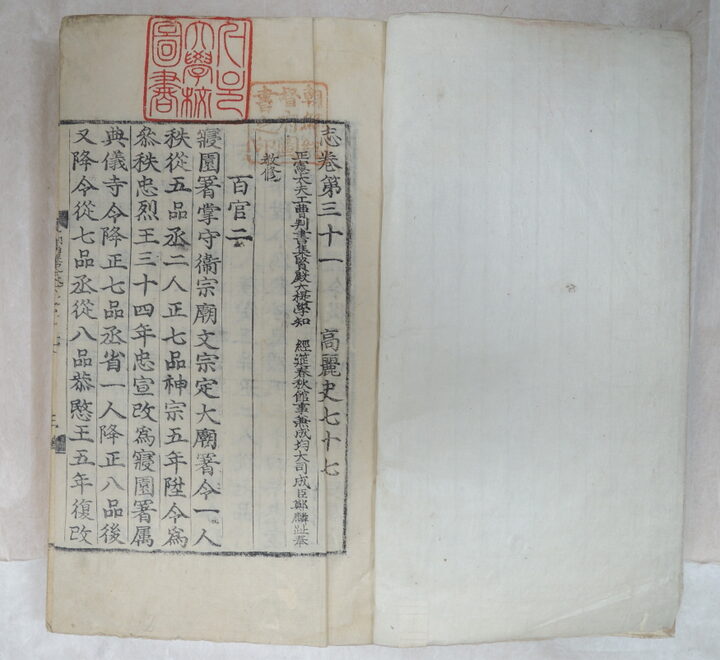 서울
大學校
圖書
朝鮮總
督府圖
書之印
志卷第三十一 高麗史七十七
正憲大夫工曹判書集賢殿大提學知 經筵春秋館事兼成均大司成臣鄭麟趾奉
敎修
百官二
寢園署掌守衛宗廟文宗定大廟署令一人
秩從五品丞二人正七品神宗五年陞令爲
叅秩忠烈王三十四年忠宣改爲寢園署属
典儀寺令降正七品丞省一人降正八品後
又降令從七品丞從八品恭愍王五年復改